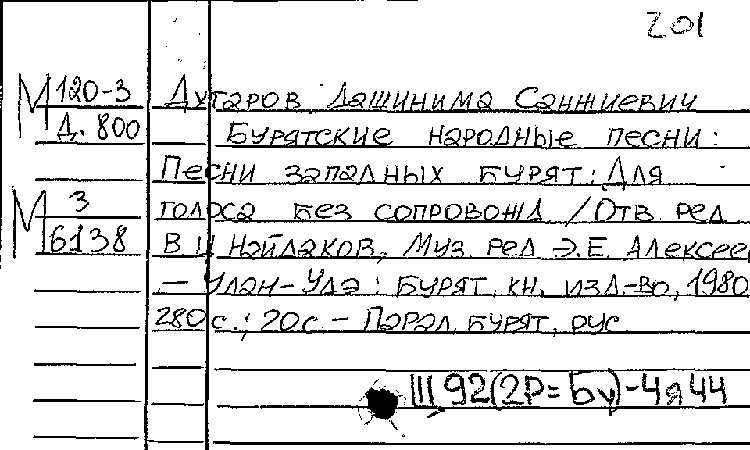 201
М 120-3 Дугаров Дашинима Санжиевич
Д. 800 Бурятские народные песни:
Песни западных бурят: Для
М 3 голоса без сопровожд /Отв ред
6138 В Ц Найдаков, Муз ред Д.Е. Алексеев
— Улан-Удэ: Бурят. кн. изд-во, 1980
280 с.; 20 с — Парал. бурят, рус
III, 92(2Р=Бу)-4я44